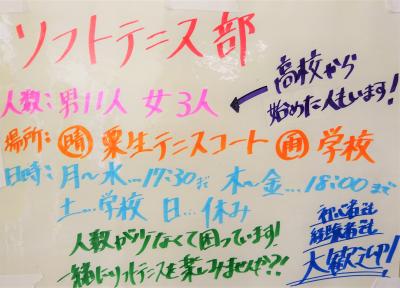 ソフトテニス部
人数：男11人 女3人
← 高校から
始めた人もいます！
場所：晴 粟生テニスコート 雨 学校
日時：月〜水…17:30まで 木〜金…18:00まで
土…学校 日…休み
人数が少なくて困っています！
一緒にソフトテニスを楽しみませんか？！
初心者でも
経験者でも
大歓迎